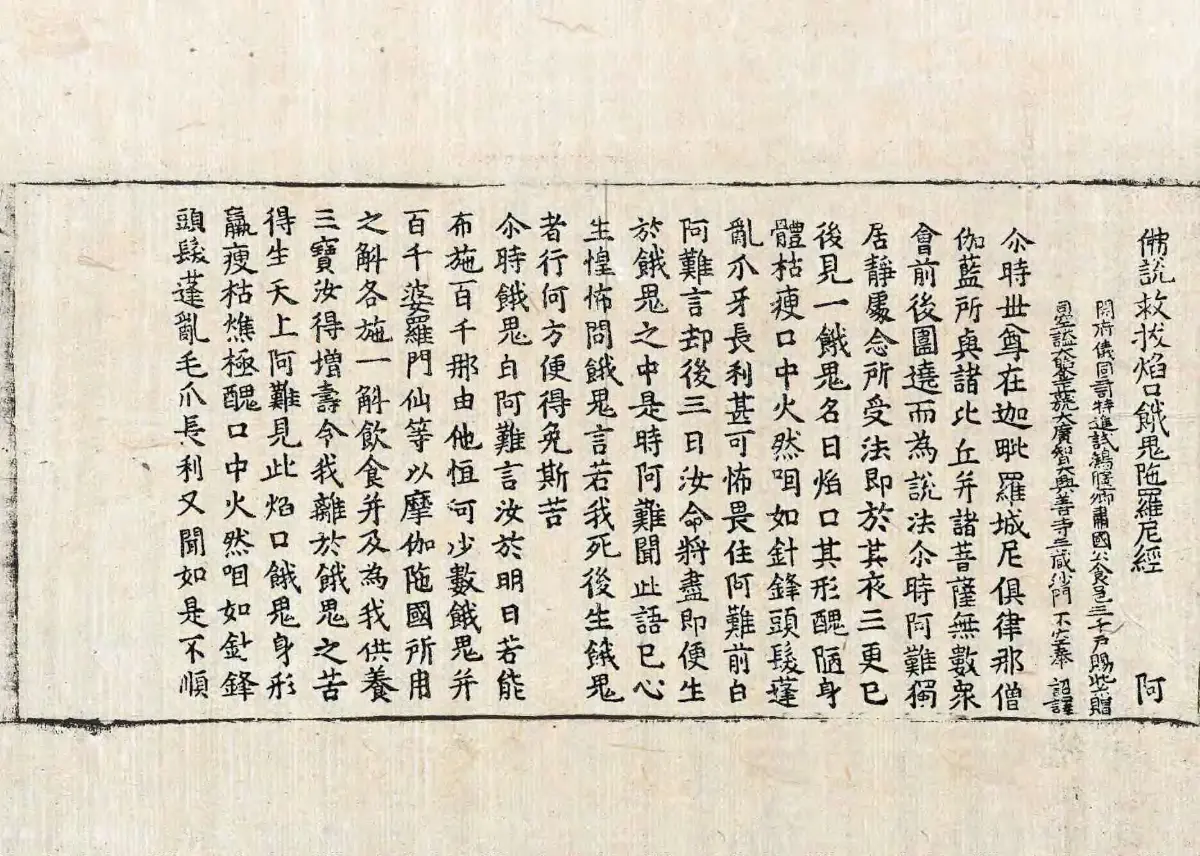 佛說救拔焰口餓鬼陁羅尼經 阿
開府儀同三司特進試鴻臚卿肅國公食邑三千戶賜紫贈
司空謚大鑒正號大廣智大興善寺三藏沙門不空奉 詔譯
尒時世尊在迦毗羅城尼俱律那僧
伽藍所與諸比丘并諸菩薩無數衆
會前後圍遶而為說法尒時阿難獨
居靜處念所受法即於其夜三更已
後見一餓鬼名曰焰口其形醜陋身
體枯瘦口中火然咽如針鋒頭髮蓬
亂爪牙長利甚可怖畏住阿難前白
阿難言却後三日汝命將盡即便生
於餓鬼之中是時阿難聞此語已心
生惶怖問餓鬼言若我死後生餓鬼
者行何方便得免斯苦
尒時餓鬼白阿難言汝於明日若能
布施百千那由他恒河沙數餓鬼并
百千婆羅門仙等以摩伽陁國所用
之斛各施一斛飲食并及為我供養
三寶汝得增壽令我離於餓鬼之苦
得生天上阿難見此焰口餓鬼身形
羸瘦枯燋極醜口中火然咽如針鋒
頭髮蓬亂毛爪長利又聞如是不順